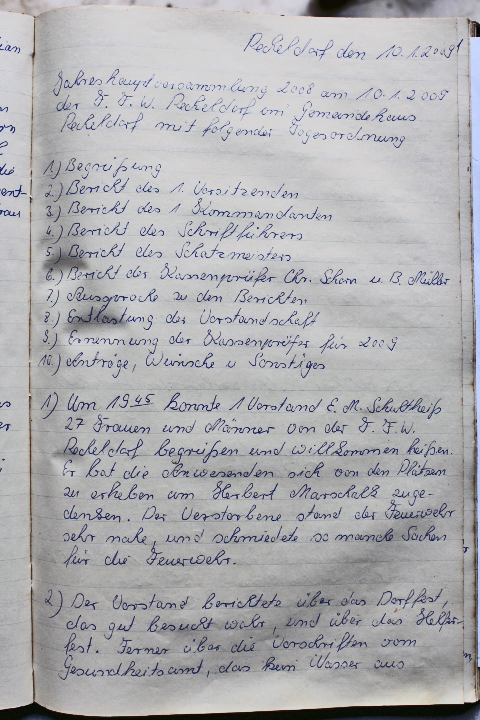 Recheldorf den 10.1.2009
Jahreshauptversammlung 2008 am 10.1.2009
der F. F. W. Recheldorf im Gemeindehaus
Recheldorf mit folgender Tagesordnung
1.) Begrüßung
2.) Bericht des 1. Vorsitzenden
3.) Bericht des 1 Kommandanten
4.) Bericht des Schriftführers
5.) Bericht des Schatzmeisters
6.) Bericht der Kassenprüfer Chr. Schorn u. B. Müller
7.) Aussprache zu den Berichten
8.) Entlastung der Vorstandschaft
9.) Ernennung der Kassenprüfer für 2009
10.) Anträge, Wünsche u Sonstiges
1.) Um 19 45 konnte 1 Vorstand E. M. Schultheiß
27 Frauen und Männer von der F. F. W.
Recheldorf begrüßen und willkommen heißen.
Er bat die Anwesenden sich von den Plätzen
zu erheben um Herbert Marschalk zuge-
denken. Der Verstorbene stand der Feuerwehr
sehr nahe, und schmiedete so manche Sachen
für die Feuerwehr.
2) Der Vorstand berichtete über das Dorffest,
das gut besucht wahr, und über das Helfer-
fest. Ferner über die Vorschriften vom
Gesundheitsamt, das kein Wasser aus